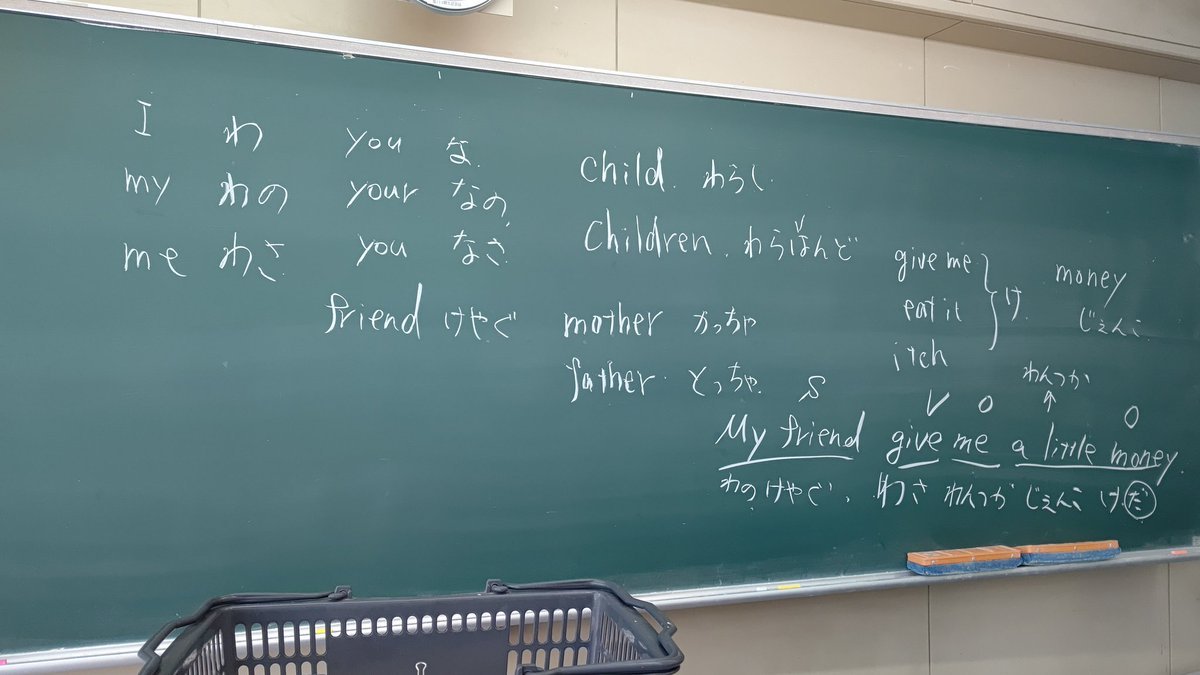 I わ you な.
my わの your なの
me わさ you なさ
friend けやぐ
child. わらし.
children. わらはんど
mother かっちゃ
father. とっちゃ
give me
eat it
itch
け.
money
じぇんこ
わんつか
↑
S V O O
My friend give me a little money.
わのけやぐ、わさ わんつか じぇんこ けだ